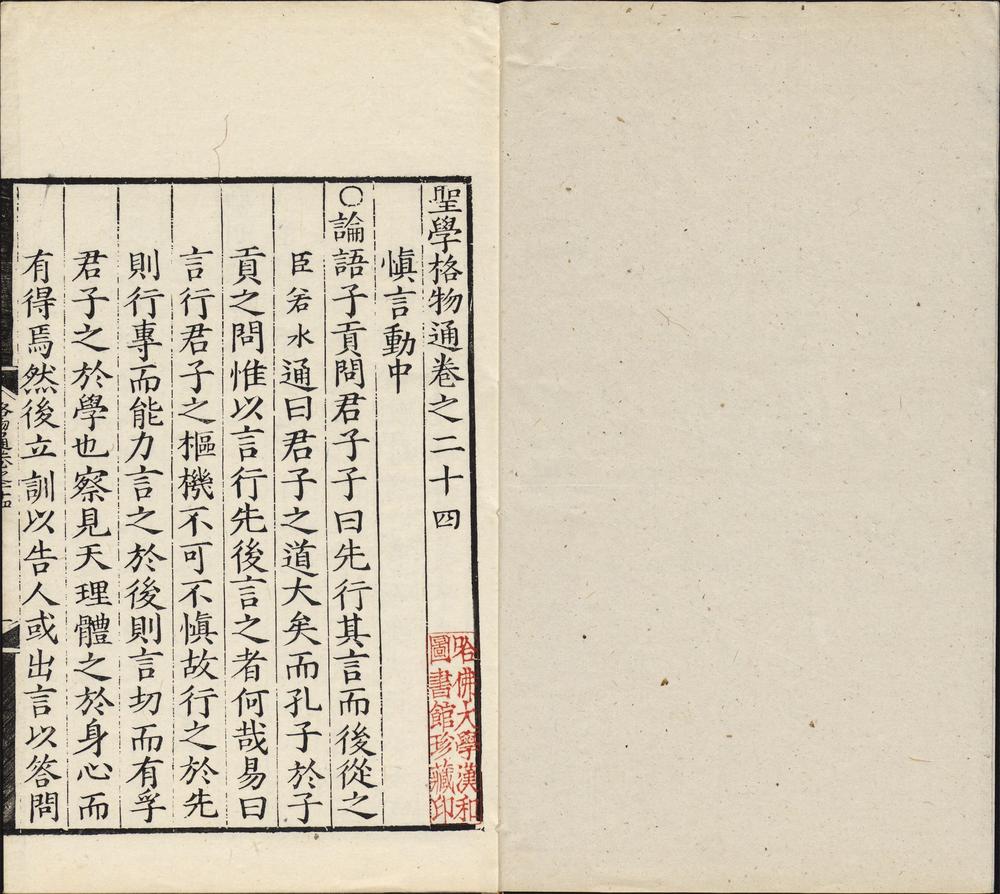 聖學格物通卷之二十四
慎言動中
○論語子貢問君子子曰先行其言而後從之
臣若水通曰君子之道大矣而孔子於子
貢之問惟以言行先後言之者何哉易曰
言行君子之樞機不可不慎故行之於先
則行專而能力言之於後則言切而有孚
君子之於學也察見天理體之於身心而
有得焉然後立訓以告人或出言以答問
哈佛大學漢和
圖書館珍藏印